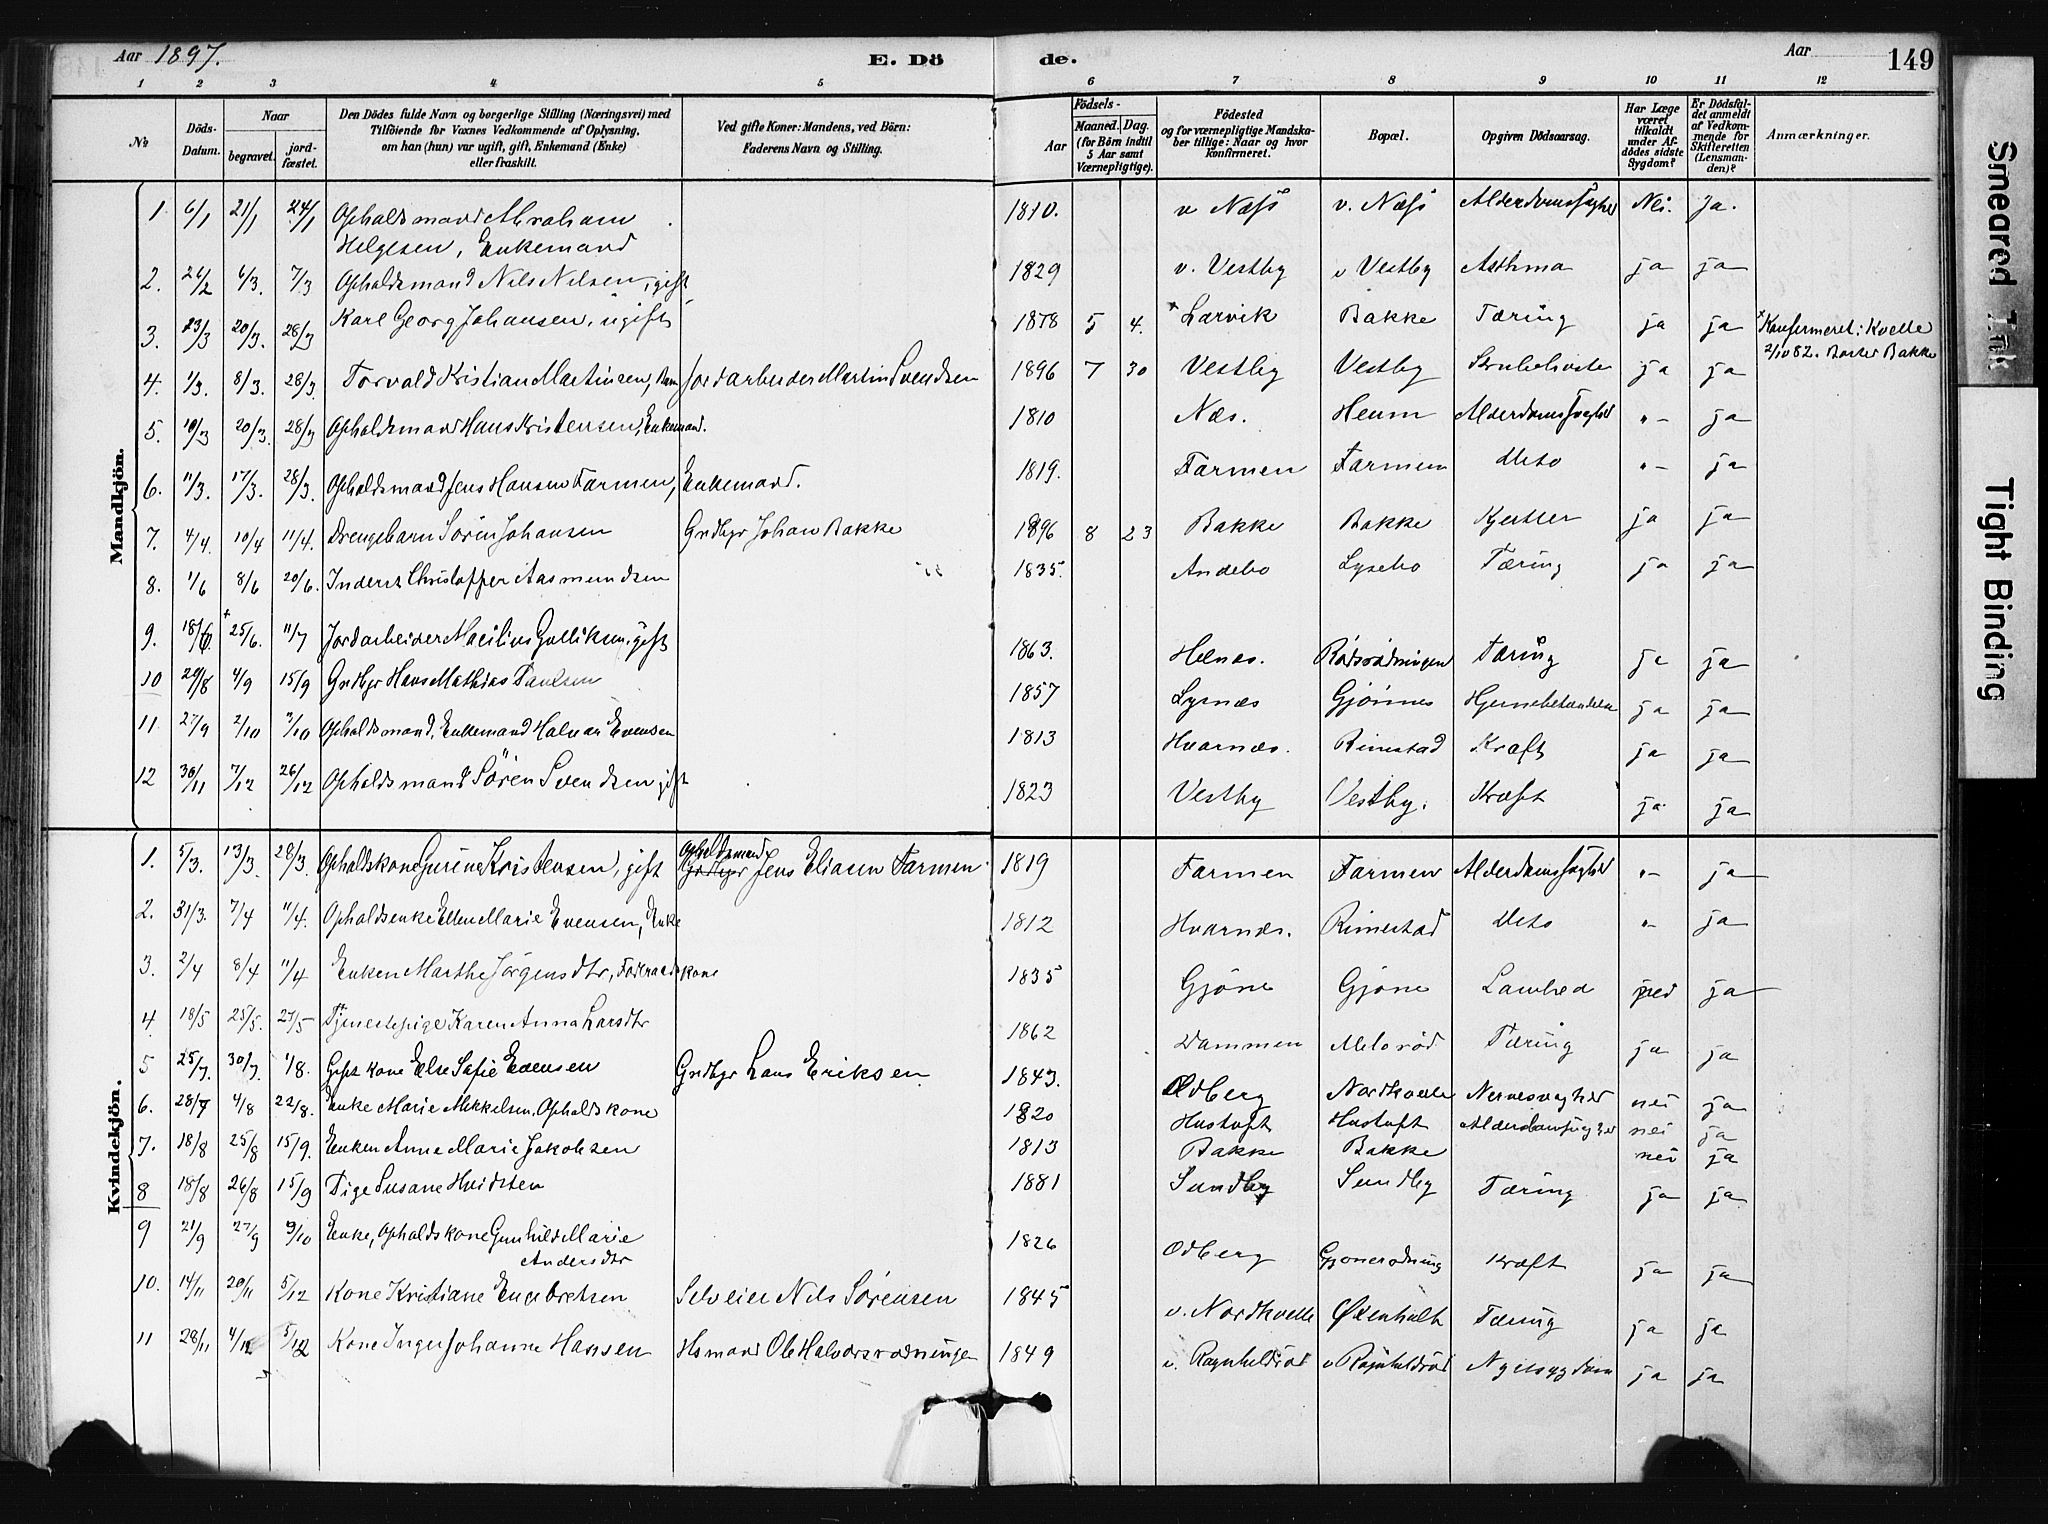 Aar 1897.
E. Döde.
Aar
149
1 2 3 4 5 6 7 8 9 10 11 12
No
Döds-Datum.
Naar
begravet.
jordfæstet.
Den Dödes fulde Navn og borgerlige Stilling (Næringsvei) med
Tilföiende for Voxnes Vedkommende af Oplysning,
om han (hun) var ugift, gift, Enkemand (Enke)
eller fraskilt.
Ved gifte Koner: Mandens, ved Börn:
Faderens Navn og Stilling.
Födsels-
Aar
Maaned. Dag.
(for Börn indtil
5 Aar samt
Værnepligtige).
Födested
og for værnepligtige Mandska-
ber tillige: Naar og hvor
konfirmeret.
Bopæl.
Opgiven Dödsaarsag.
Har Læge
været
tilkaldt
under Af-
dödes sidste
Sygdom?
Er Dödsfal-
det anmeldt
af Vedkom-
mende for
Skifteretten
(Lensman-
den)?
Anmærkninger.
Mandkjön.
1 6/1 21/1 24/1 Opholdsmand Abraham Helgesen, Enkemand 1810. v Næss v. Næss Alderdomssvaghed Nei. Ja.
2. 26/2 6/3. 7/3 Opholdsmand Nils Nilsen, gift 1829 v. Vestby v Vestby Asthma ja ja
3. 13/3 20/3. 28/3 Karl Georg Johansen, ugift 1878 5 4. + Larvik Bakke Tæring ja ja + Konfirmeret: Kvelle
2/10 82. Bakke
4. 1/3. 8/3. 28/3. Torvald Kristian Martinsen, Barn Jordarbeider Martin Svendsen 1896 7 30 Vestby Vestby Strubehoste ja ja
5. 10/3 20/3. 28/3 Opholdsmand Hans Kristensen, Enkemand. 1810 Næs. Heum Alderdomssvaghed "- ja
6. 11/3. 17/3. 28/3. Opholdsmand Jens Hansen Farmen, Enkemand. 1819. Farmen Farmen dito "- ja
7. 4/4. 10/4 11/4. Drengebarn Sörin Johansen Grdbgr Johan Bakke 1896 8 23 Bakke Bakke Kjertler ja ja
8. 1/6 8/6 20/6. Inderst Christoffer Aasmundsen 1835. Andebo Lysebo Tæring ja ja
9. 18/6 + 25/6. 11/7 Jordarbeider Gulliksen, gift 1863. Helnæs. Rödsrödningen Tæring ja ja
10 29/8 4/9 15/9 Grdbgr Hans Mathias Paulsen 1857 Lysnæs Gjönnes ja ja
11 27/9 2/10 3/10 Opholdsmand, Enkemand Halvor Evensen 1813 Hvarnæs. Rimestad Kræft ja ja
12 30/11 7/12 26/12 Opholdsmand Sören Svendsen gift 1823 Vestby Vestby. Kræft ja ja
Kvindekjön.
1. 5/3. 13/3. 28/3. Opholdskone Gurine Kristensen, gift Opholdsmand Grdbgr Jens Eliasen Farmen 1819 Farmen Farmen Alderdomssvaghed "- ja
2. 31/3. 7/4 11/4. Opholdsenke Ellen Marie Evensen, Enke 1812 Hvarnæs. Rimestad dito "- ja
3. 2/4 8/4 11/4 Enken Marthe Jörgensdtr, Föderaadskone 1835 Gjöne Gjöne Lamhed ja
4. 18/5 25/5. 27/5 Tjenestepige Karen Anna Larsdtr 1862 Dammen Melsröd Tæring ja ja
5 25/7. 30/7. 1/8. Gift kone Else Sofie Evensen Grdbgr Lars Eriksen 1843. Odberg Nordkvelle Nervesvaghed nei ja
6. 28/7 4/8 22/8. Enke Marie Mikkelsen, Opholdskone 1820 Hustoft Hustoft Alderdomssvaghed nei ja
7. 18/8 25/8 15/9. Enken Anne Marie Jakobsen 1813 Bakke Bakke nei ja
8 18/8 26/8 15/9 Pige Susane Hvidsten 1881 Sundby Sundby Tæring ja ja
9 21/9 27/9 9/10 Enke, Opholdskone Gunhild Marie Andersdtr 1826 Odberg Gjonerödning Kræft ja ja
10. 14/11 20/11 5/12 Kone Kristiane Engebretsen Selveier Nils Sörensen 1845 v. Nordkvelle Öxenholt Tæring ja ja
11 28/11 4/12 5/12 Kone Inger Johanne Hansen Hsmand Ole Halvorsrødningen 1849 v. Ragnhildröd v Ragnhildröd Nyresygdom ja ja
Smeared Ink
Tight Binding